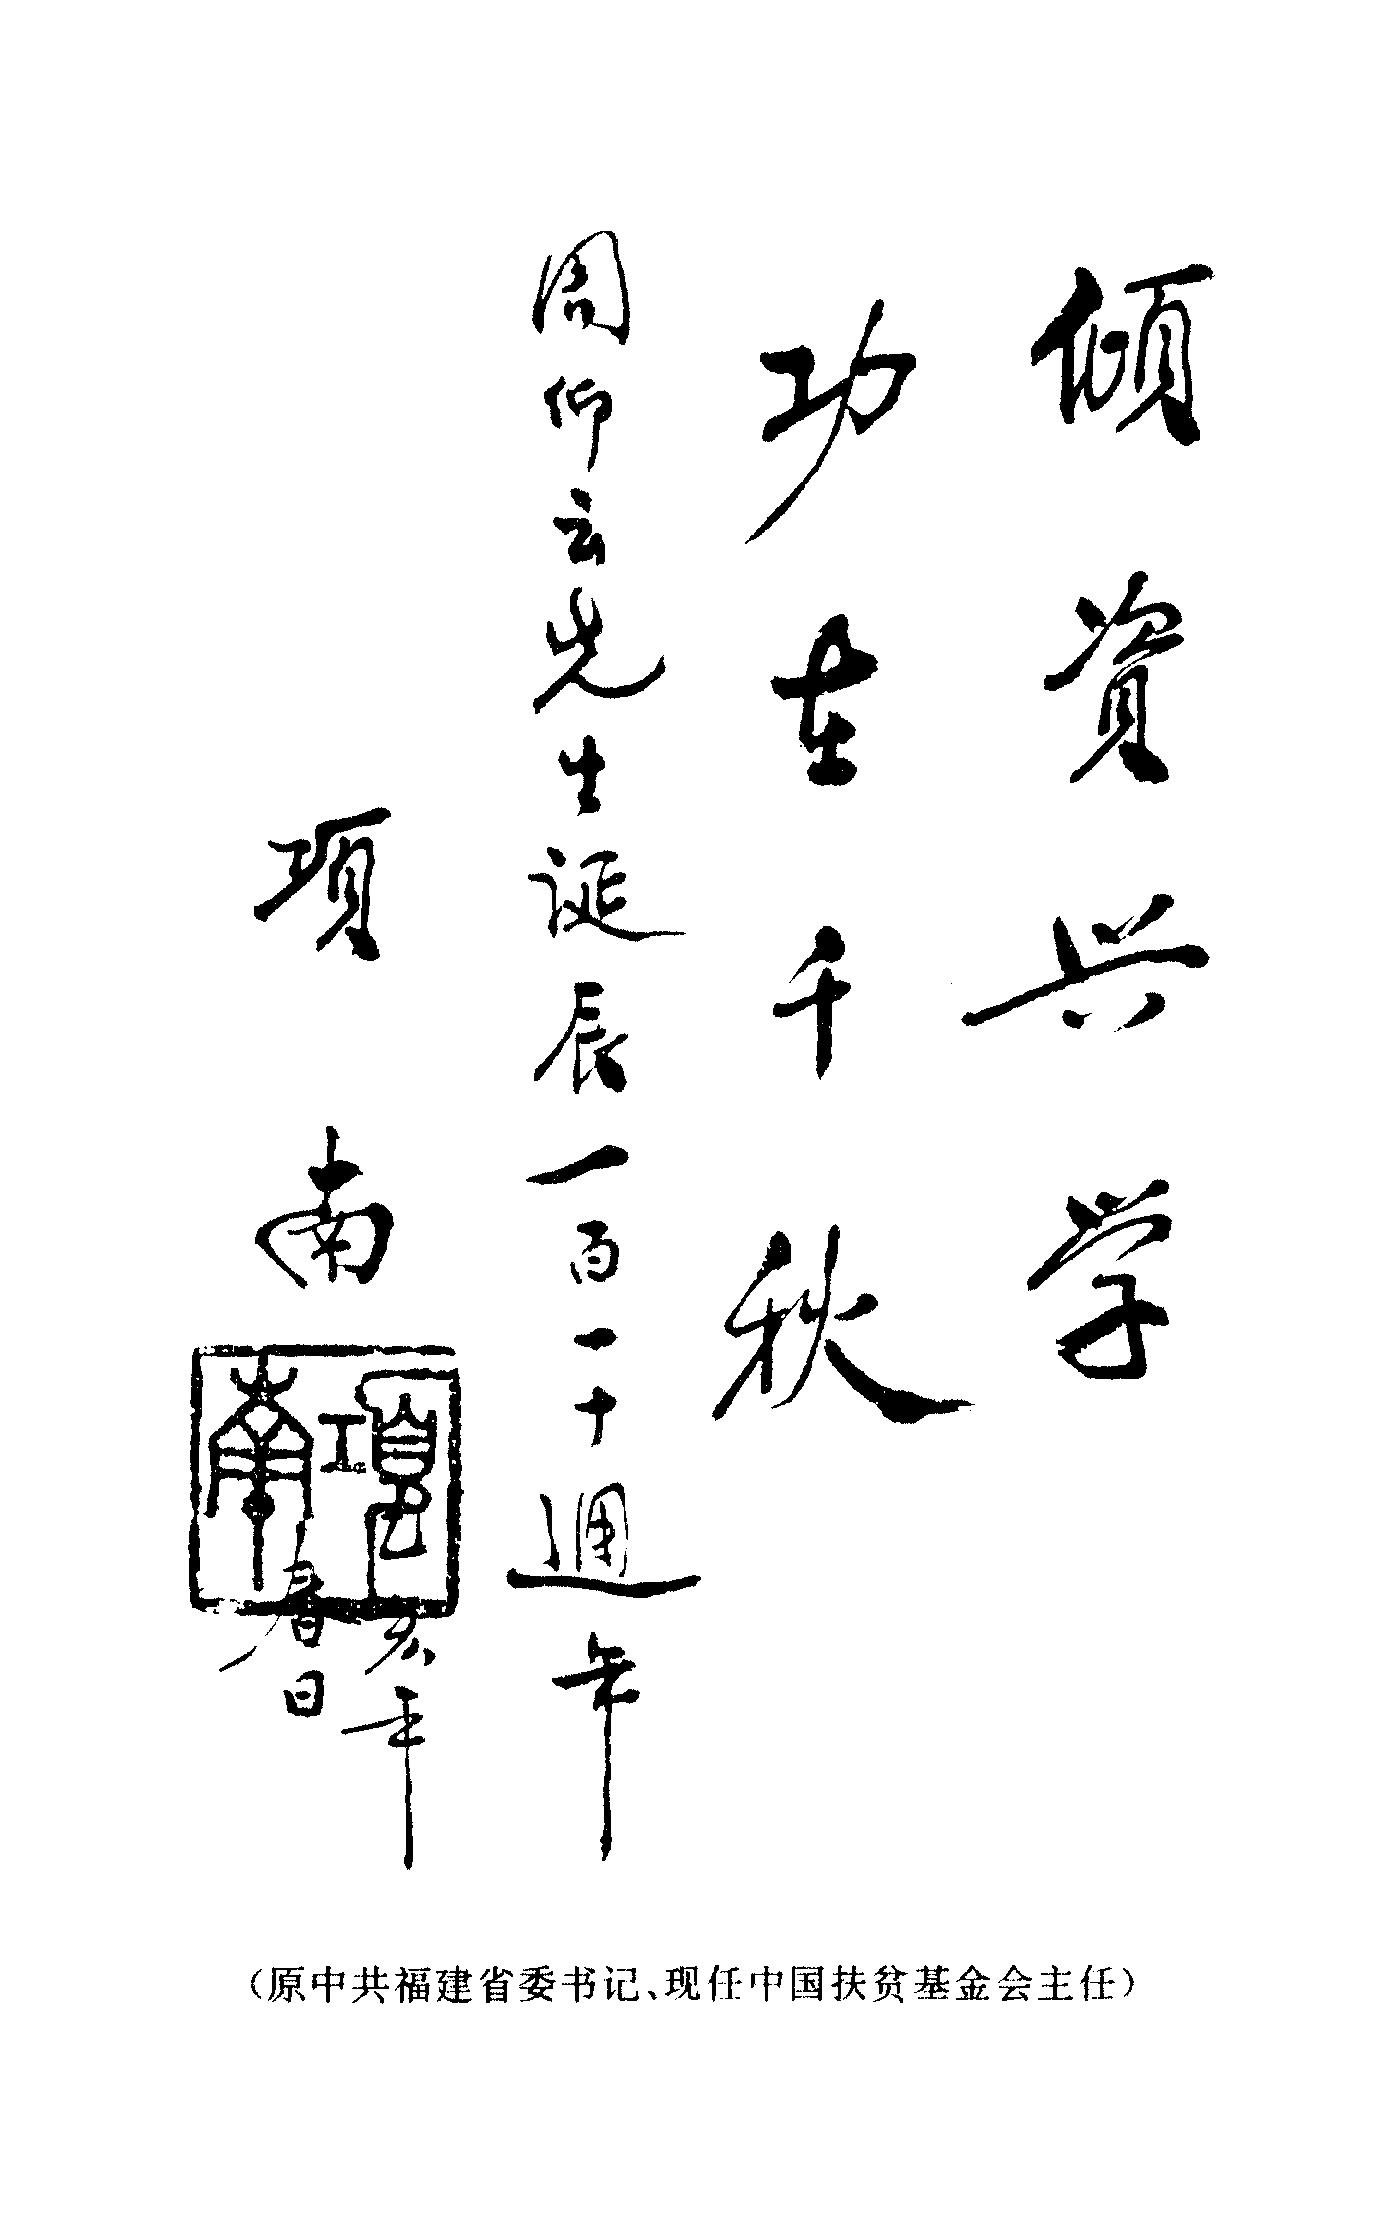 傾資兴学
功在千秋
周仰云先生诞辰一百一十週年
項南
項南
亥年
春日
（原中共福建省委书记、现任中国扶贫基金会主任）